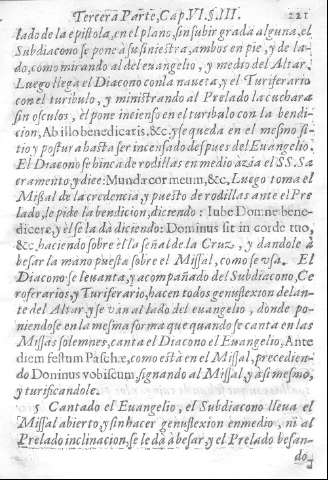 Tercera Parte, Cap. VI. §. III. 221
lado de la epistola, en el plano, sin subir grada alguna, el
Subdiacono se pone à su siniestra, ambos en pie, y de la-
do, como mirando al del euangelio, y medio del Altar.
Luego llega el Diacono con la naueta, y el Turiferario
con el turibulo, y ministrando al Prelado la cuchara
sin osculos, èl pone incienso en el turibalo con la bendi-
cion, Ab illo benedicatis, &c. y se queda en el mesmo si-
tio y postura hasta ser incensado despues del Euangelio.
El Diacono se hinca de rodillas en medio àzia el SS. Sa-
cramento, y dize: Munda cor meum, &c. Luego toma el
Missal de la credencia, y puesto de rodillas ante el Pre
lado, le pide la bendicion, diciendo: Iube Domne bene-
dicere, y el se la dà diciendo: Dominus sit in corde tuo,
&c. haciendo sobre èl la señal de la Cruz, y dandole à
besar la mano puesta sobre el Missal, como se vsa. El
Diacono se leuanta, y acompañado del Subdiacono, Ce
roferarios, y Turiferario, hacen todos genuflexion delan-
te del Altar, y se vàn al lado del euangelio, donde po-
niendose en la mesma forma que quando se canta en las
Missas solemnes, canta el Diacono el Euangelio, Ante
diem festum Paschæ, como està en el Missal, precedien-
do Dominus vobiscum, signando al Missal, y à sì mesmo,
y turificandole.
5 Cantado el Euangelio, el Subdiacono lleua el
Missal abierto, y sin hacer genuflexion en medio, ni al
Prelado inclinacion, se le dà à besar, y el Prelado besan-
do,